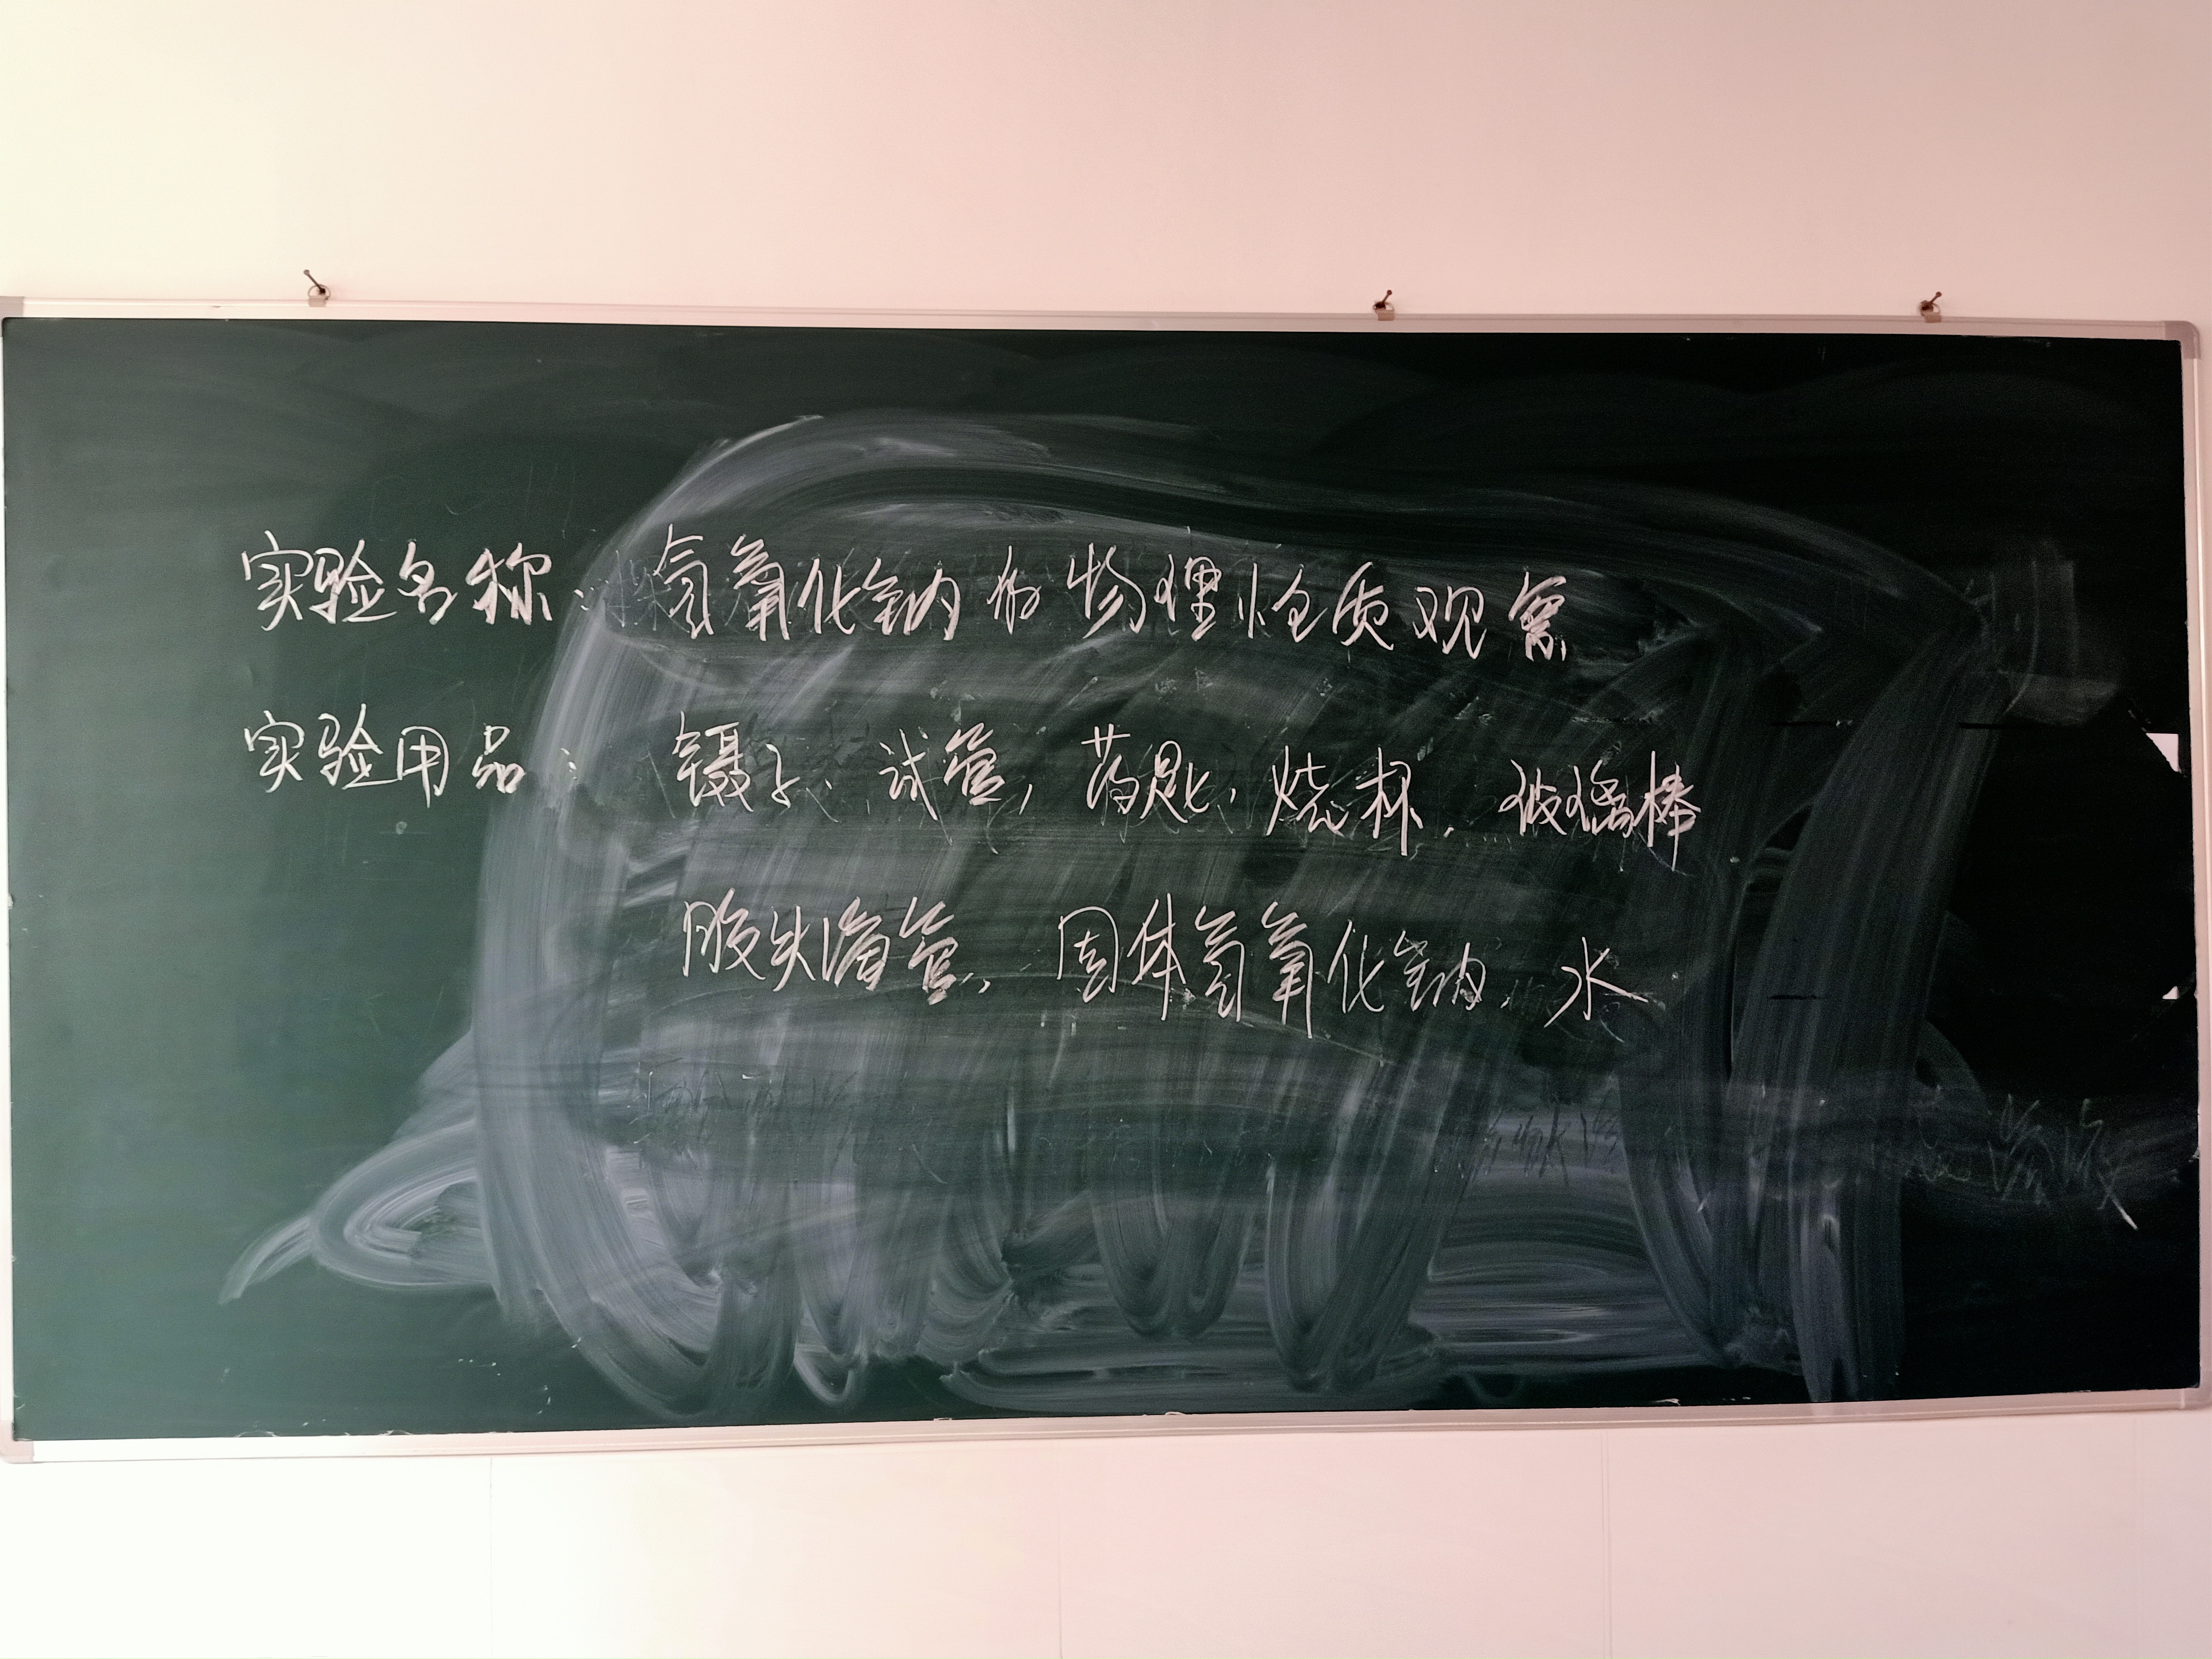 实验名称：氢氧化钠的物理性质观察
实验用品：镊子、试管、药匙、烧杯、玻璃棒
胶头滴管、固体氢氧化钠、水